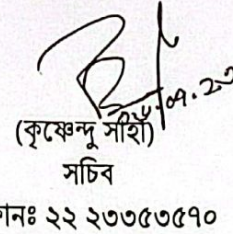 (কৃষ্ণেন্দু সাহা)
সচিব
নঃ ২২ ২৩৩৫৩৫৭০